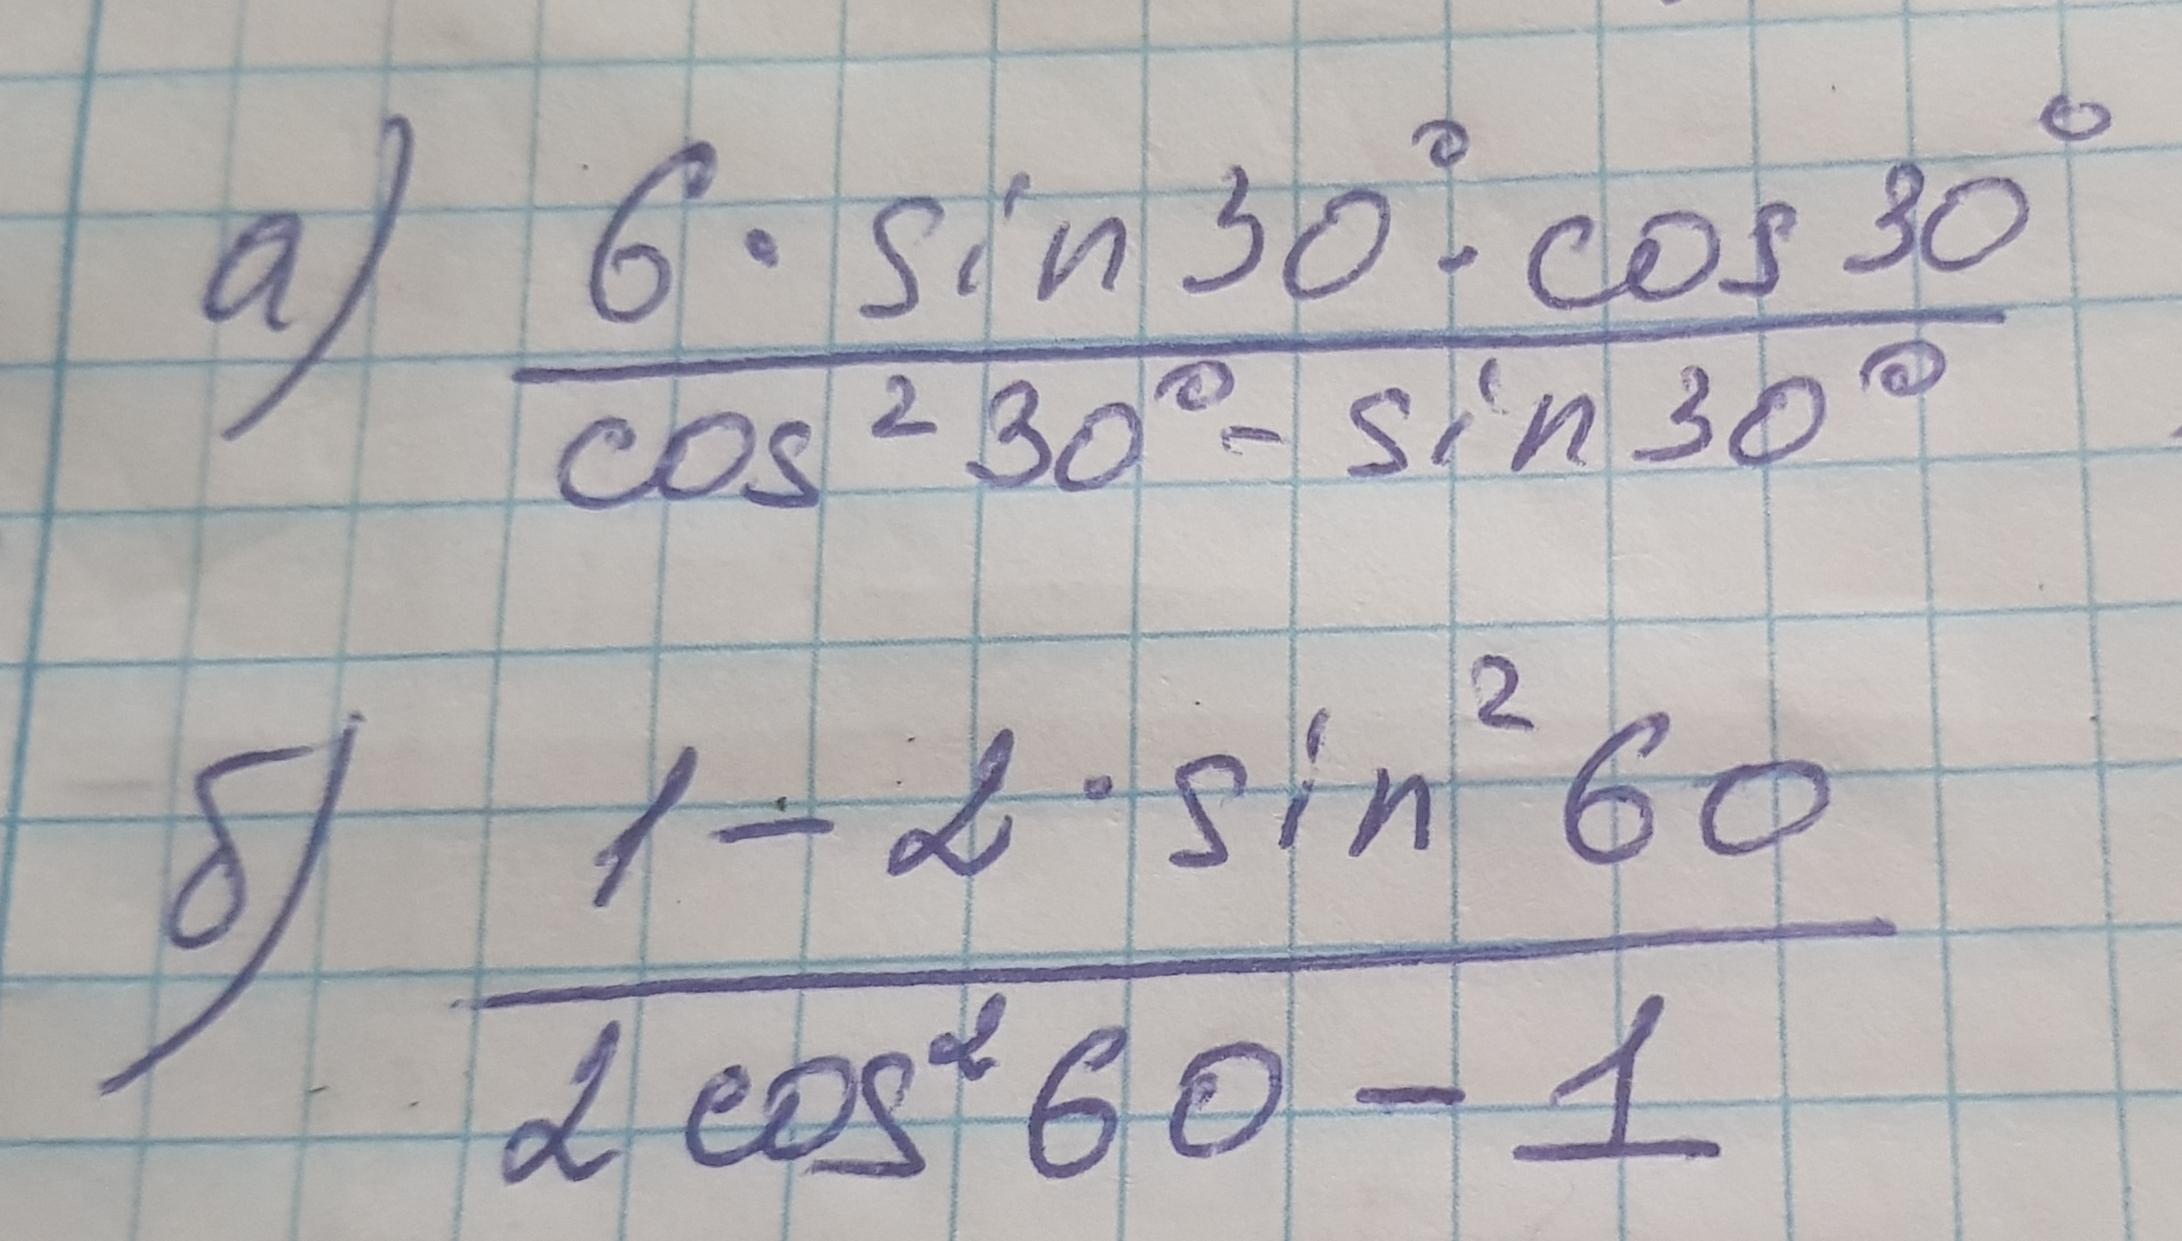 а) 6 · sin 30° · cos 30°
cos² 30° - sin 30°
б) 1 - 2 · sin² 60
2 cos² 60 - 1